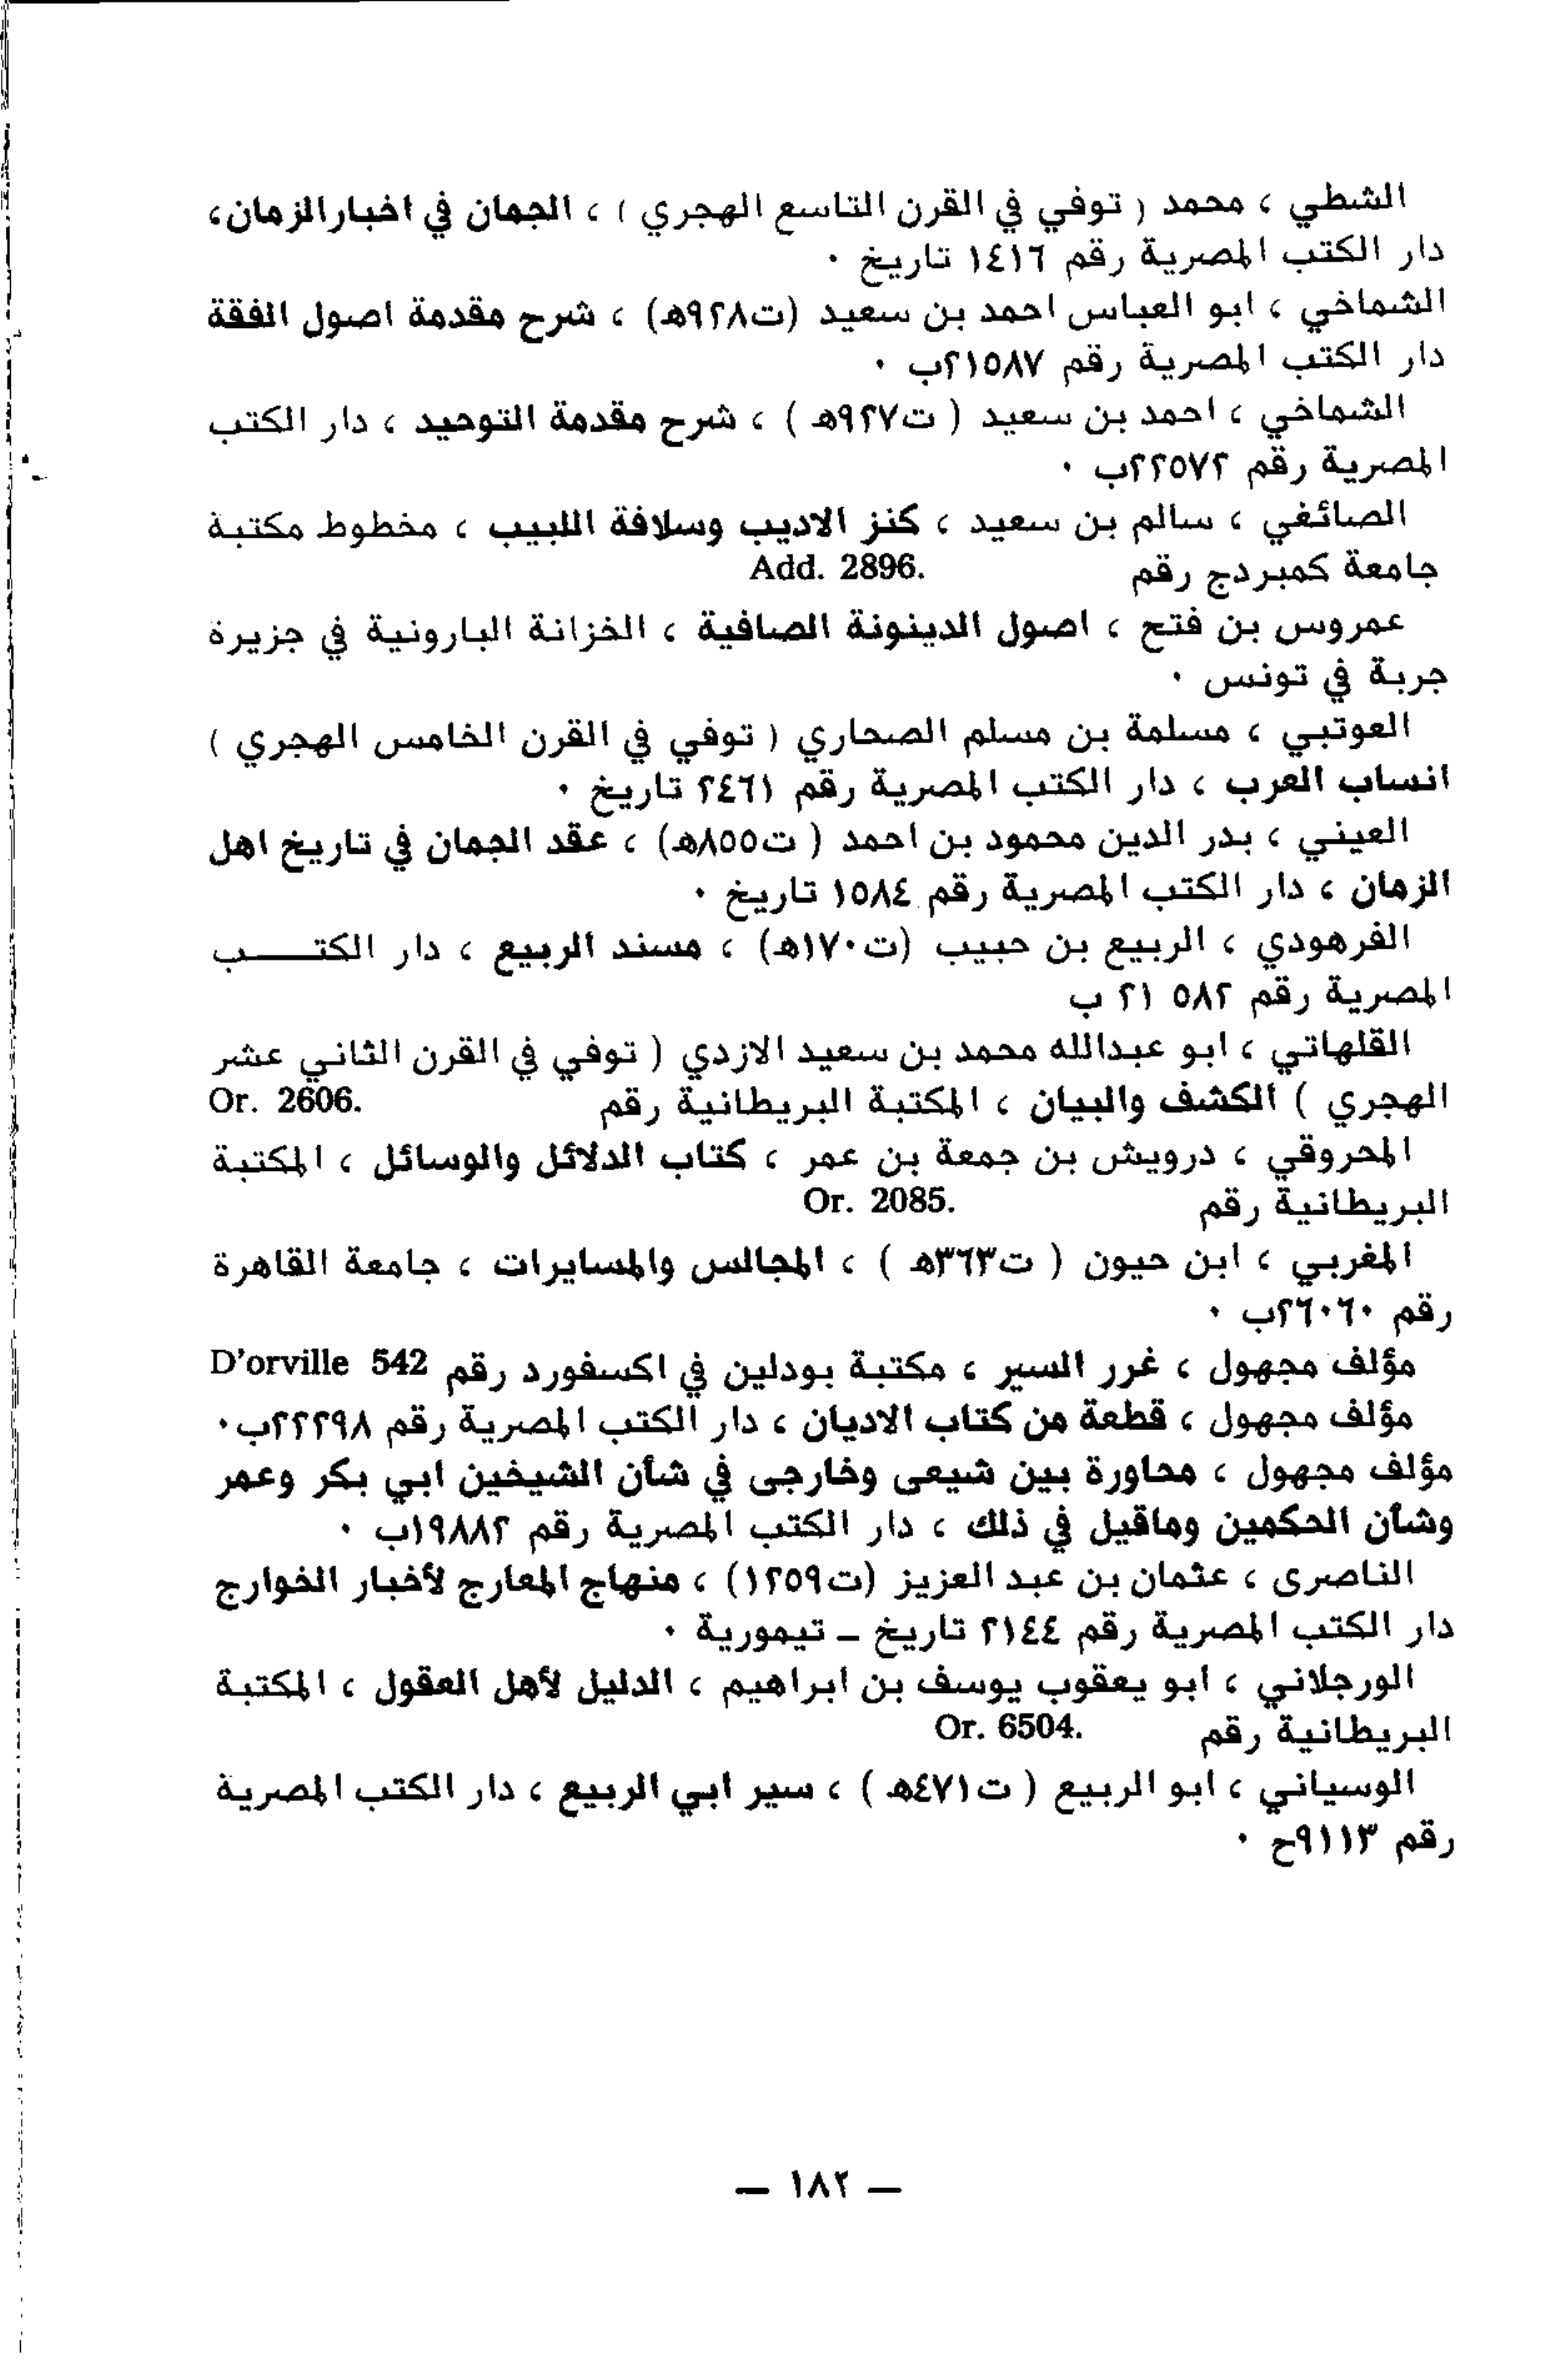 الشطي ، محمد ( توفي في القرن التاسع الهجري ) ، الجمان في اخبارالزمان،
دار الكتب المصرية رقم ١٤١٦ تاريخ ٠
الشماخي ، ابو العباس احمد بن سعيد (ت٩٢٨هـ) ، شرح مقدمة اصول الفقة
دار الكتب المصرية رقم ٢١٥٨٧ب ٠
الشماخي ، احمد بن سعيد ( ت٩٢٧هـ ) ، شرح مقدمة التوحيد ، دار الكتب
المصرية رقم ٢٢٥٧٢ب ٠
الصائغي ، سالم بن سعيد ، كنز الاديب وسلافة اللبيب ، مخطوط مكتبة
جامعة كمبردج رقم Add. 2896.
عمروس بن فتح ، اصول الدينونة الصافية ، الخزانة البارونية في جزيرة
جربة في تونس ٠
العوتبي ، مسلمة بن مسلم الصحاري ( توفي في القرن الخامس الهجري )
انساب العرب ، دار الكتب المصرية رقم ٢٤٦١ تاريخ ٠
العيني ، بدر الدين محمود بن احمد ( ت٨٥٥هـ) ، عقد الجمان في تاريخ اهل
الزمان ، دار الكتب المصرية رقم ١٥٨٤ تاريخ ٠
الفرهودي ، الربيع بن حبيب (ت١٧٠هـ) ، مسند الربيع ، دار الكتـــــب
المصرية رقم ٥٨٢ ٢١ ب
القلهاتي ، ابو عبدالله محمد بن سعيد الازدي ( توفي في القرن الثاني عشر
الهجري ) الكشف والبيان ، المكتبة البريطانية رقم Or. 2606.
المحروقي ، درويش بن جمعة بن عمر ، كتاب الدلائل والوسائل ، المكتبة
البريطانية رقم Or. 2085.
المغربي ، ابن حيون ( ت٣٦٣هـ ) ، المجالس والمسايرات ، جامعة القاهرة
رقم ٢٦٠٦٠ب ٠
مؤلف مجهول ، غرر السير ، مكتبة بودلين في اكسفورد رقم D'orville 542
مؤلف مجهول ، قطعة من كتاب الاديان ، دار الكتب المصرية رقم ٢٢٢٩٨ب٠
مؤلف مجهول ، محاورة بين شيعى وخارجى في شأن الشيخين ابي بكر وعمر
وشأن الحكمين وماقيل في ذلك ، دار الكتب المصرية رقم ١٩٨٨٢ب ٠
الناصرى ، عثمان بن عبد العزيز (ت١٢٥٩) ، منهاج المعارج لأخبار الخوارج
دار الكتب المصرية رقم ٢١٤٤ تاريخ ـ تيمورية ٠
الورجلاني ، ابو يعقوب يوسف بن ابراهيم ، الدليل لأهل العقول ، المكتبة
البريطانية رقم Or. 6504.
الوسياني ، ابو الربيع ( ت٤٧١هـ ) ، سير ابي الربيع ، دار الكتب المصرية
رقم ٩١١٣ح ٠
— ١٨٢ —